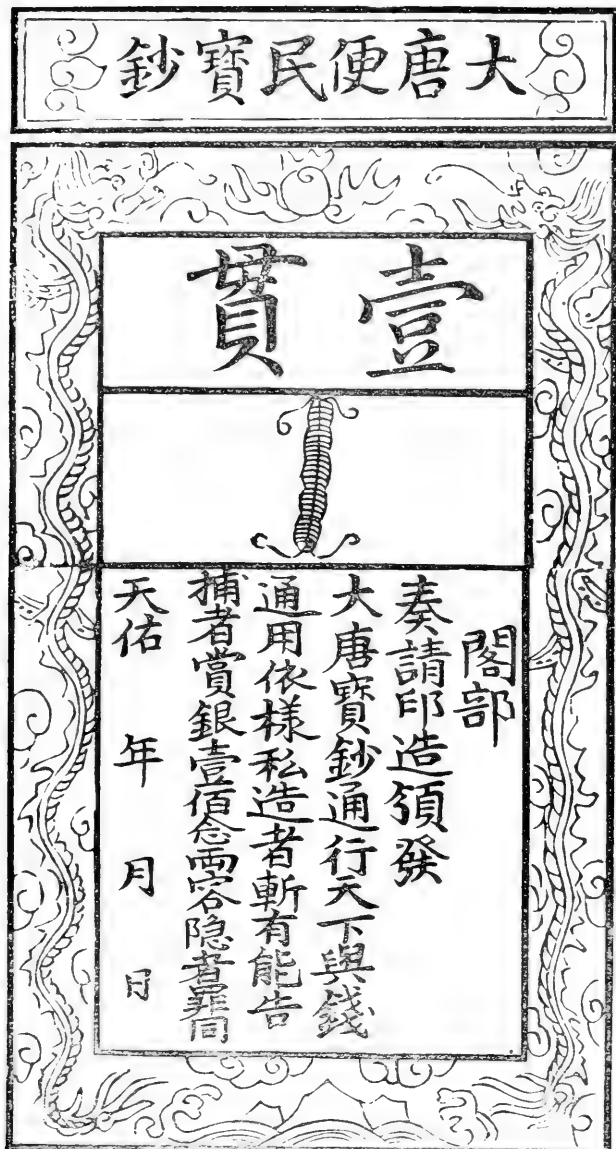 大唐便民寶鈔
壹貫
閣部
奏請印造頒發
大唐寶鈔通行天下與錢
通用依樣私造者斬有能告
捕者賞銀壹佰念兩容隐者罪同
天佑　年　月　日